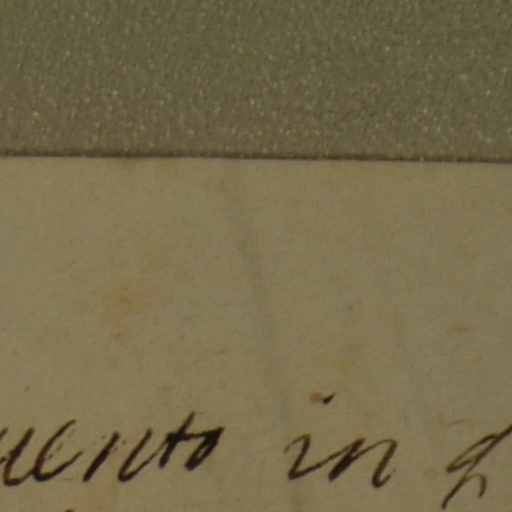 uento in